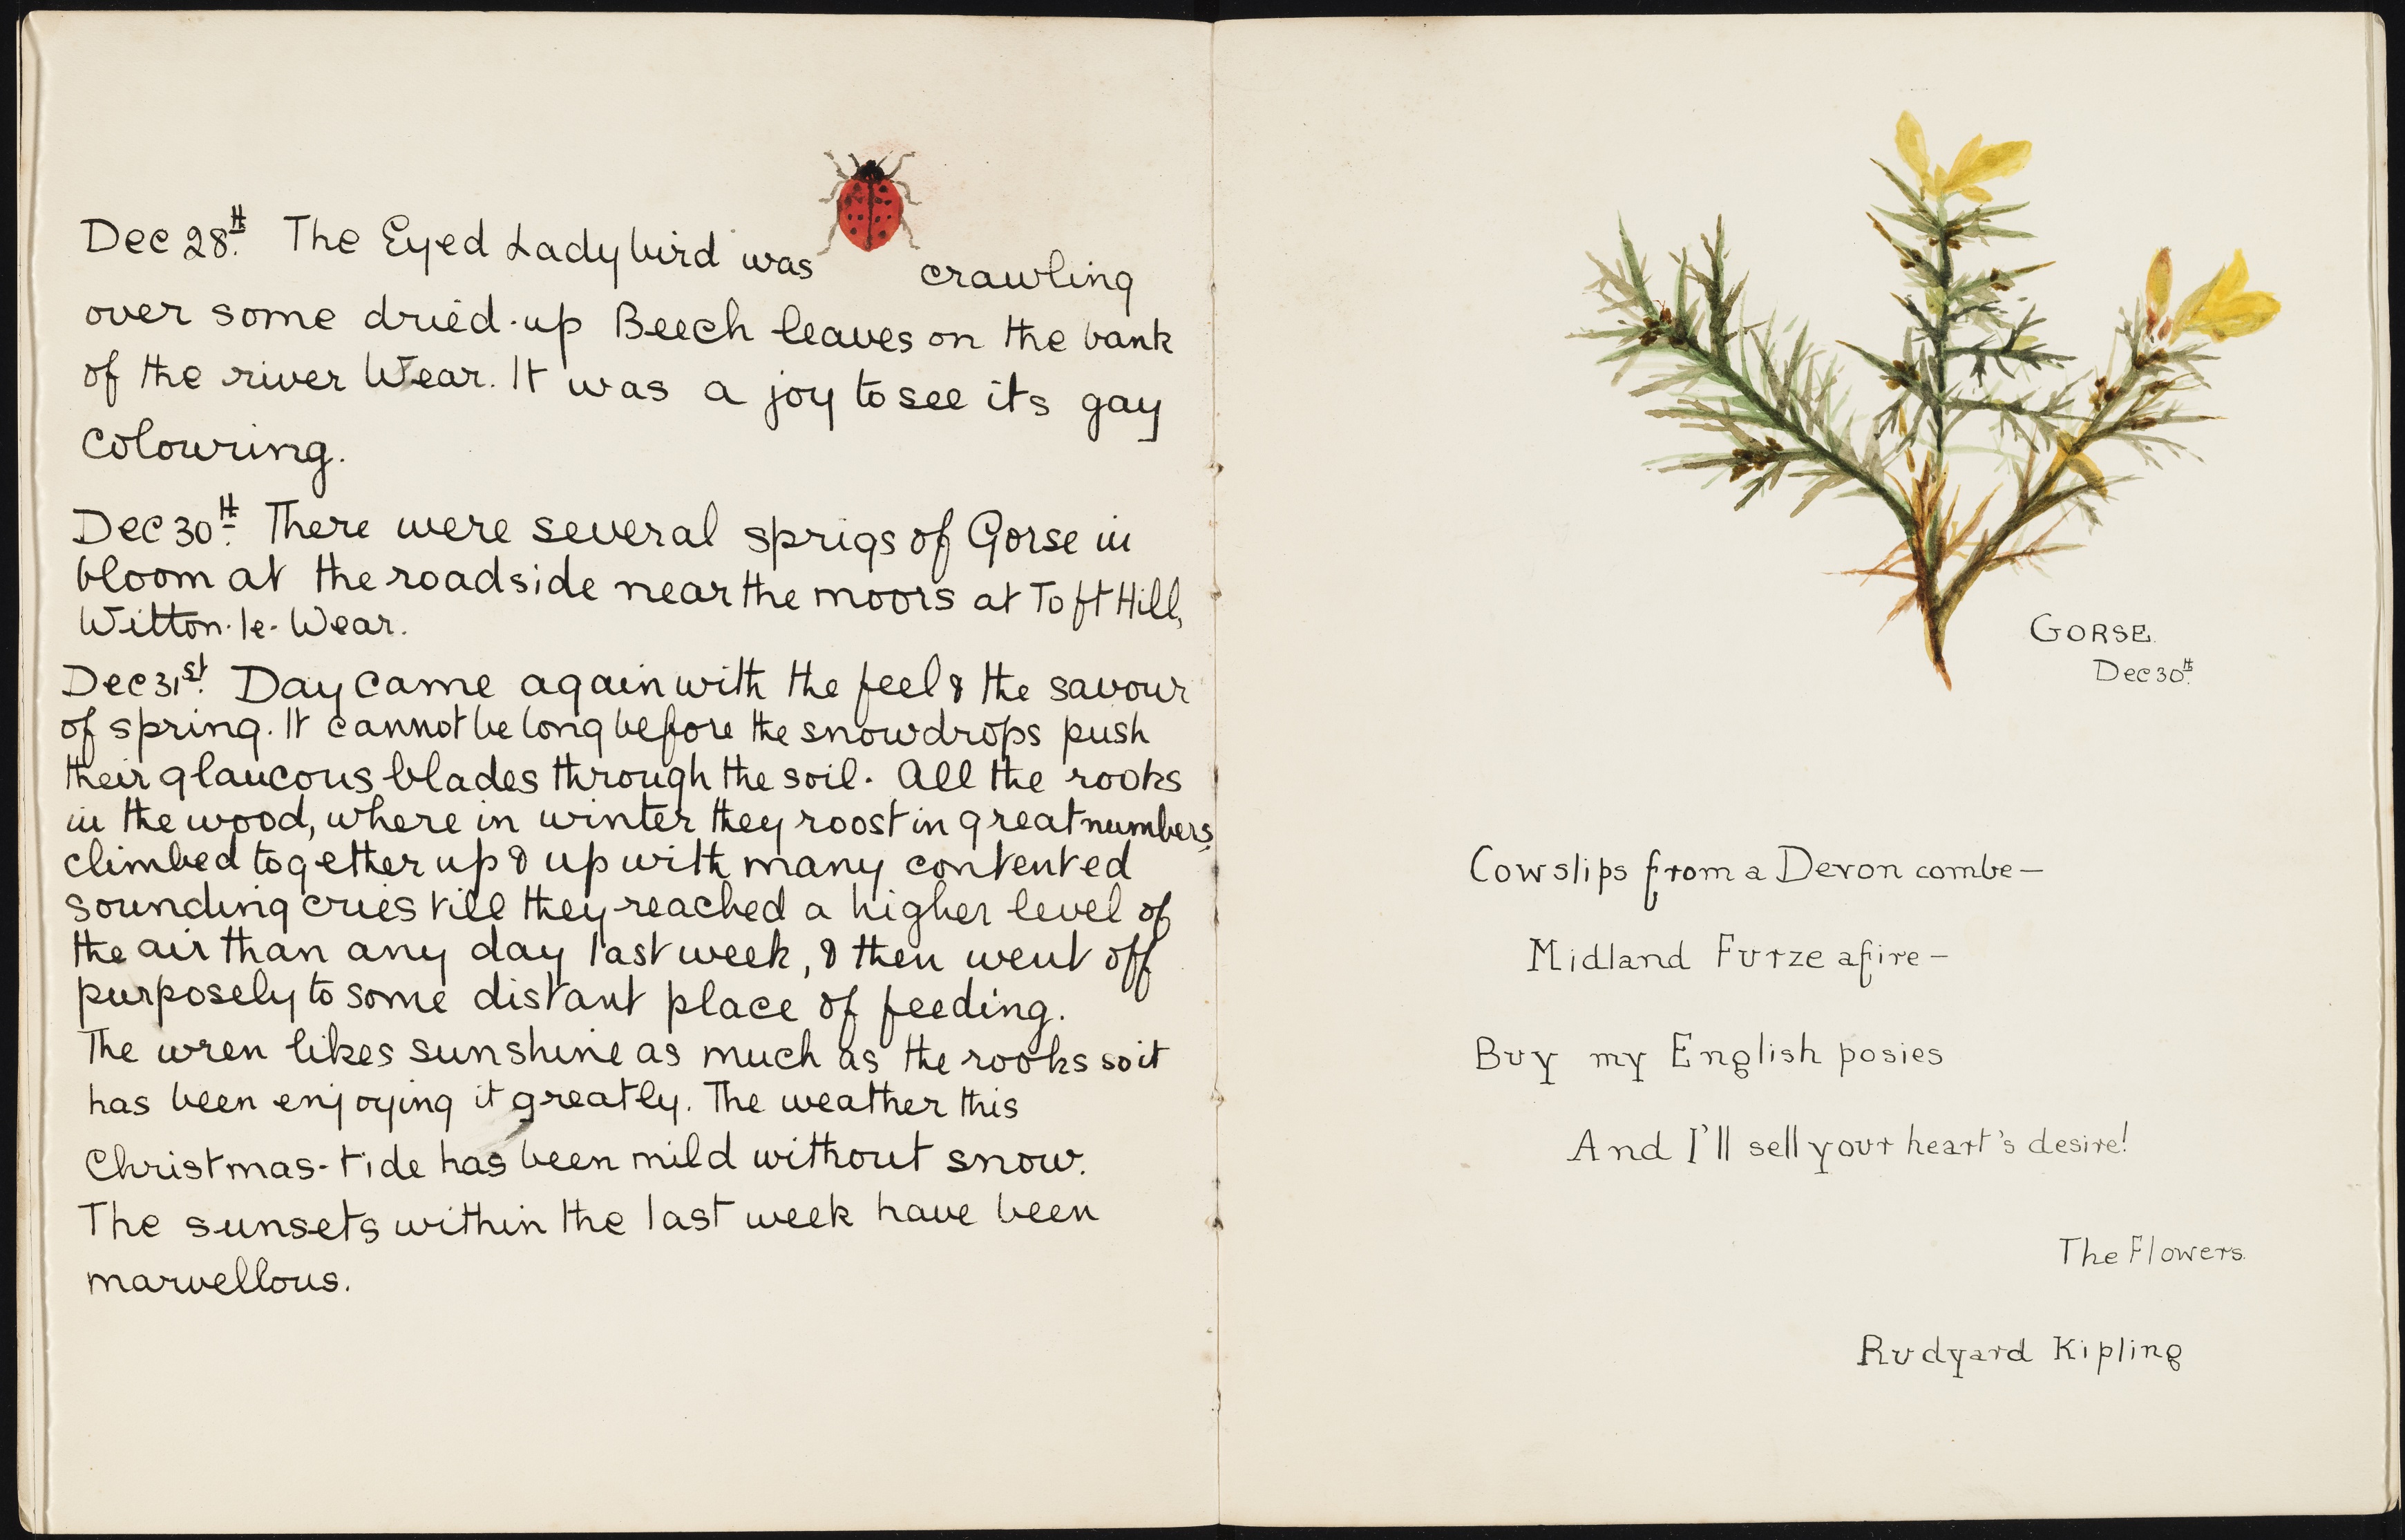 Dec 28th. The Eyed Ladybird was crawling
over some dried-up Beech leaves on the bank
of the river Wear. It was a joy to see its gay
colouring.
Dec 30th. There were several sprigs of Gorse in
bloom at the roadside near the moors at Toft Hill,
Witton-le-Wear.
Dec 31st. Day came again with the feel & the savour
of spring. It cannot be long before the snowdrops push
their glaucous blades through the soil. All the rooks
in the wood, where in winter they roost in great numbers,
climbed together up & up with many contented
sounding cries till they reached a higher level of
the air than any day last week, & then went off
purposely to some distant place of feeding.
The wren likes sunshine as much as the rooks so it
has been enjoying it greatly. The weather this
Christmas-tide has been mild without snow.
The sunsets within the last week have been
marvellous.
GORSE.
Dec 30th.
Cowslips from a Devon combe—
Midland Furze afire—
Buy my English posies
And I'll sell your heart's desire!
The Flowers.
Rudyard Kipling